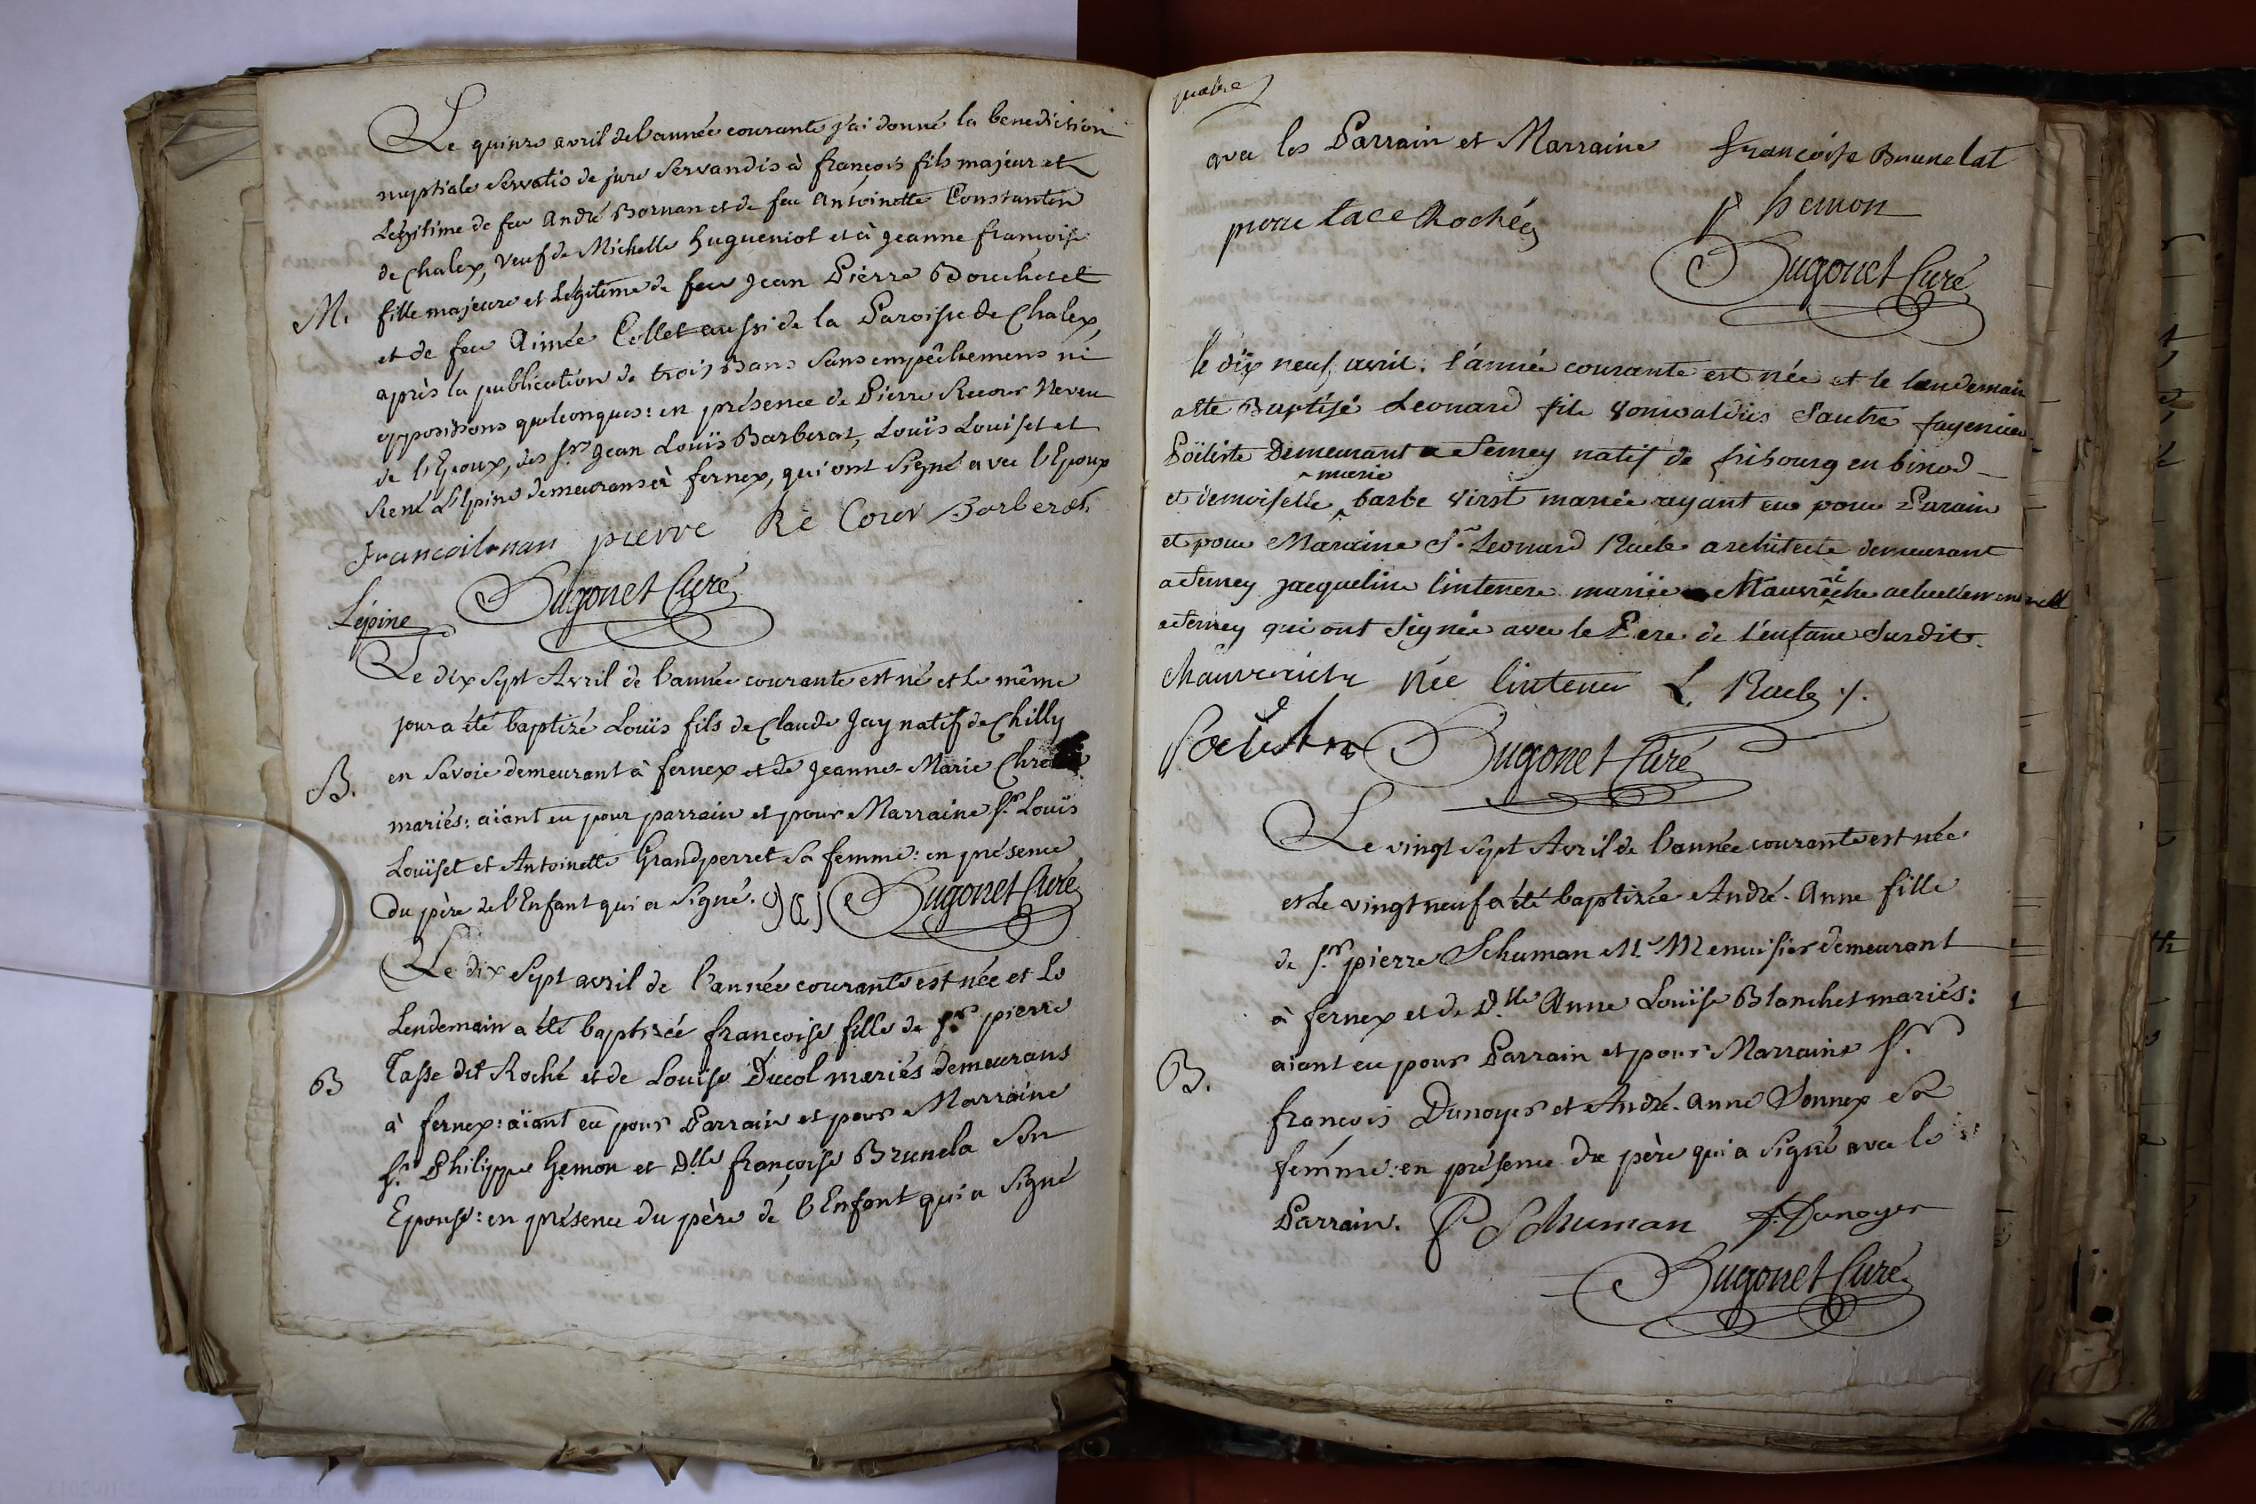 Le quinze avril de l'année courante j'ai donné la benediction
nuptiale servatis de jure servandis à françois fils majeur et
Legitime de feu André Bornan et de feu Antoinette Constantin
de Chalex, veuf de Michelle hugueniot et à Jeanne françoise
M. fille majeure et Legitime de feu Jean Pierre Doucheset
et de feu Aimée Collet aussi de la Paroisse de Chalex,
après la publication de trois Bans sans empêchemens ni
oppositions quelconques: en présence de Pierre Recour Neveu
de l'Epoux, des Srs Jean Louïs Barberat, Louïs Louiset et
René L'Epine demeurans à fernex, qui ont signé avec l'Epoux
pierre Re Corer Barberat
Lépine Hugonet Curé
Le dix sept Avril de l'année courante est né et le même
jour a été baptizé Louïs fils de Claude Jay natif de Chilly
B. en Savoie demeurant à fernex et de Jeanne-Marie
mariés: aiant eu pour parrain et pour Marraine Sr Louïs
Louïset et Antoinette Grandperret sa femme: en présence
du père de l'Enfant qui a signé. Hugonet Curé
Le dix sept avril de l'année courante est née et le
Lendemain a été baptizée françoise fille de Sr pierre
B Tasse dit Roché et de Louise Ducol mariés demeurans
à fernex: aïant eu pour Parrain et pour Marraine
Sr Philippe hemon et Dlle françoise Brunela son
Epouse: en présence du père de l'Enfant qui a signé
quatre
avec les Parrain et Marraine françoise Brunelat
piere tace Rochée p hemon
Hugonet Curé
le dix neuf avril. l'année courante est née et le landemain
atte Baptisé Leonard fils Sautre fayencier
Poëliste Demeurant a ferney natif de fribourg en
marie
et demoiselle barbe virst mariée ayant eu pour Parain
et pour Maraine Sr Leonard Racle architecte demeurant
a ferney jacqueline lintenere mariée
a ferney qui ont signée avec le Pere de l'enfant Susdit.
née lintener L. Racle
Hugonet Curé
Le vingt sept Avril de l'année courante est née
et le vingt neuf a été baptizée André-Anne fille
de Sr pierre Schuman Me Menuisier demeurant
à fernex et de Dlle Anne Louïse Blanchet mariés:
B. aiant eu pour Parrain et pour Marraine Sr
françois Dunoyer et André-Anne Vonnex sa
femme: en présence du père qui a signé avec le
Parrain. P Schuman f. Dunoyer
Hugonet Curé